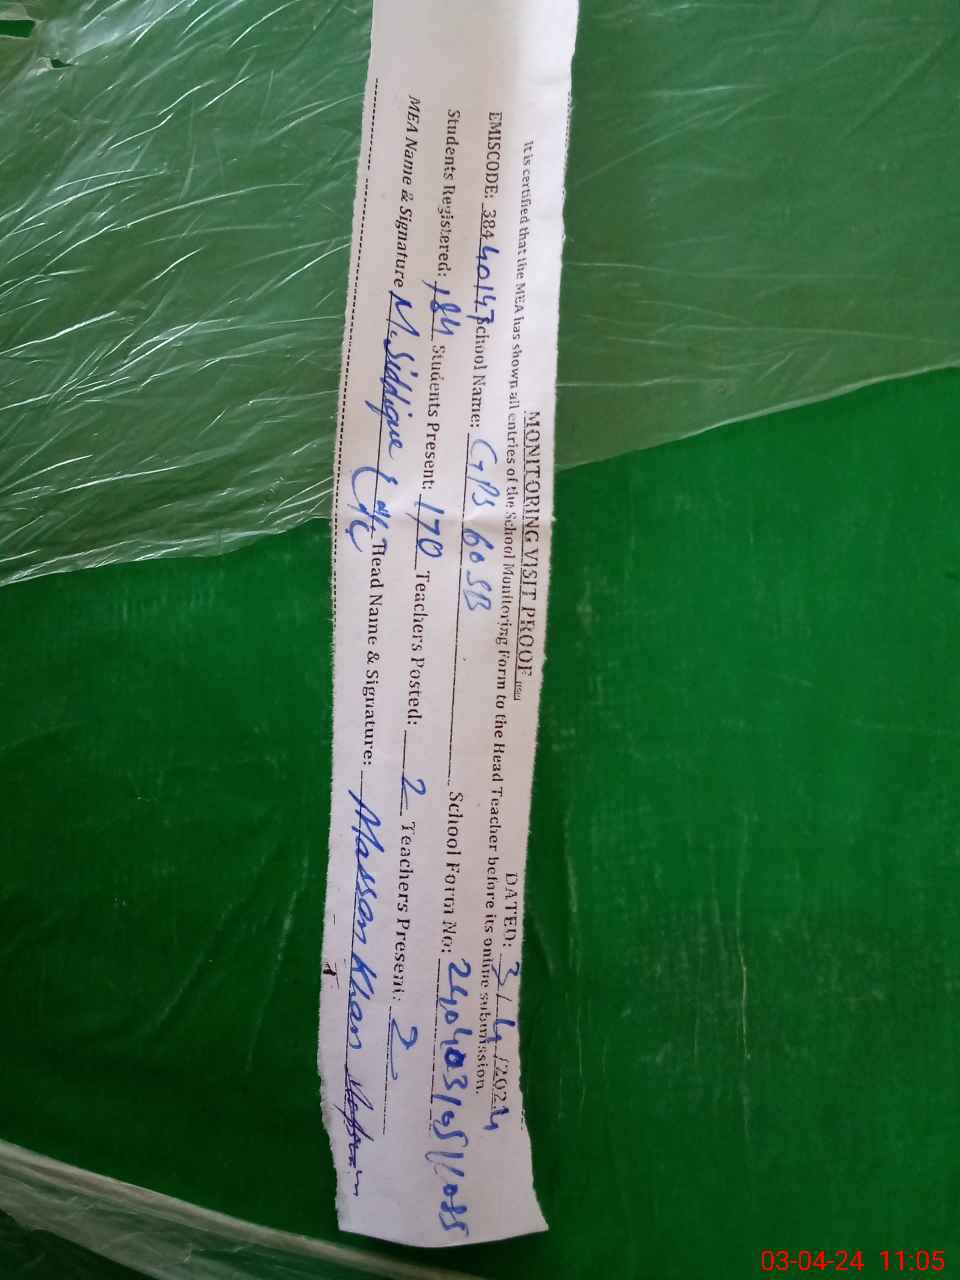 MONITORING VISIT PROOF
DATED: 3/4/2024
It is certified that the MEA has shown all entries of the School Monitoring Form to the Head Teacher before its online submission.
EMISCODE: 38440147 School Name: GPS 60 SB School Form No:
Students Registered: 184 Students Present: 170 Teachers Posted: 2 Teachers Present: 2
MEA Name & Signature M. Siddique Head Name & Signature: Hassan Khan
03-04-24 11:05